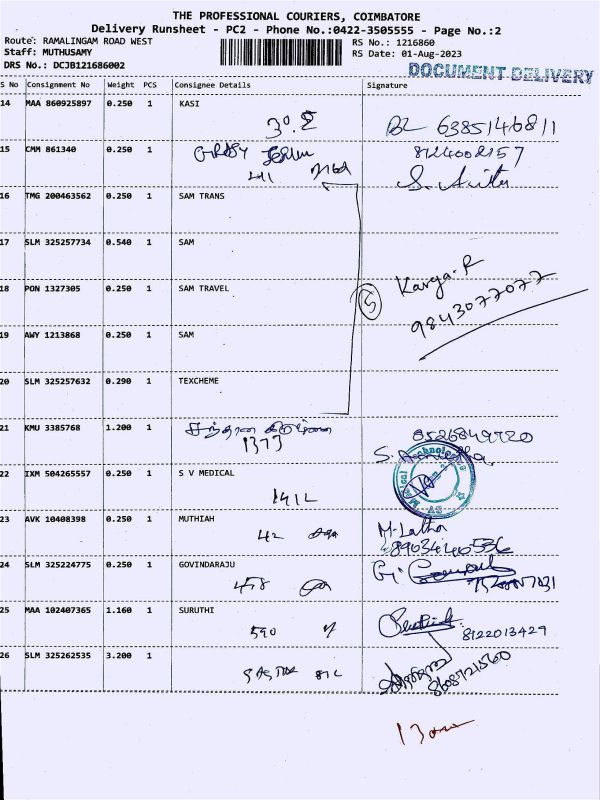 THE PROFESSIONAL COURIERS, COIMBATORE
Delivery Runsheet - PC2 - Phone No.:0422-3505555 - Page No.:2
Route: RAMALINGAM ROAD WEST
RS No.: 1216860
Staff: MUTHUSAMY
RS Date: 01-Aug-2023
DRS No.: DCJB121686002
DOCUMENT DELIVERY
S No Consignment No Weight PCS Consignee Details Signature
14 MAA 860925897 0.250 1 KASI
6385146811
15 CMM 861340 0.250 1
8124002157
S. Anitha
16 TMG 200463562 0.250 1 SAM TRANS
17 SLM 325257734 0.540 1 SAM
18 PON 1327305 0.250 1 SAM TRAVEL
5
Karga. R
9843077077
19 AWY 1213868 0.250 1 SAM
20 SLM 325257632 0.290 1 TEXCHEME
21 KMU 3385768 1.200 1
1373
8526849720
22 IXM 504265557 0.250 1 S V MEDICAL
141L
23 AVK 10408398 0.250 1 MUTHIAH
42
M. Latha
8903440536
24 SLM 325224775 0.250 1 GOVINDARAJU
458
25 MAA 102407365 1.160 1 SURUTHI
590
8122013429
26 SLM 325262535 3.200 1
81L
8608721560
13